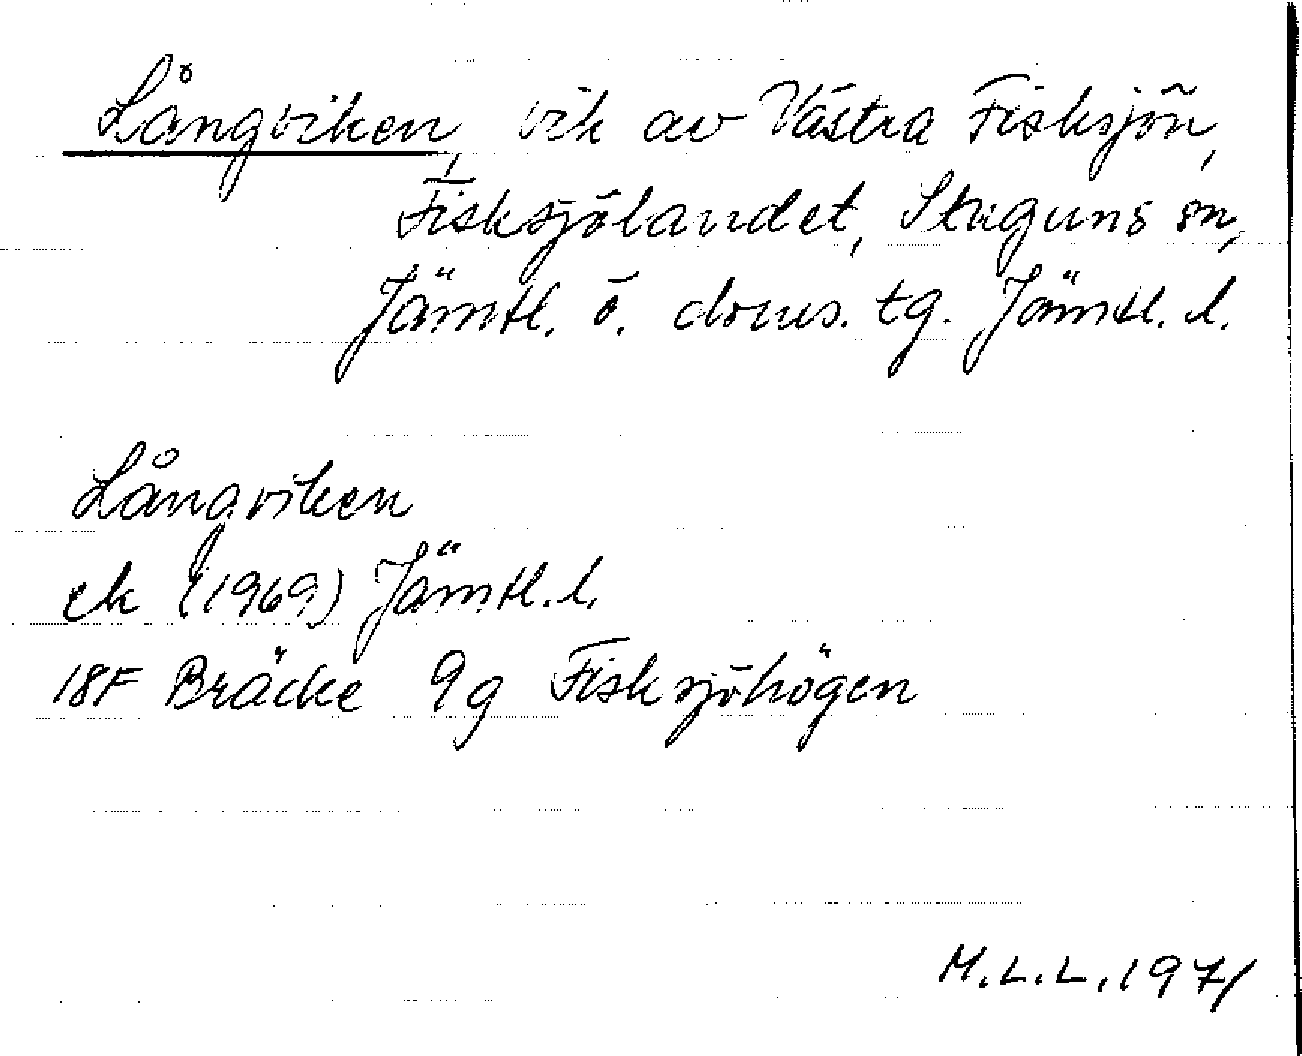 Långviken, vik av Västra Fisksjön,
Fisksjölandet, Stuguns sn,
Jämtl. ö. doms. tg. Jämtl. l.
Långviken
ek (1969) Jämtl. l.
18F Bräcke 9g Fisksjöhögen
M.L.L. 1971